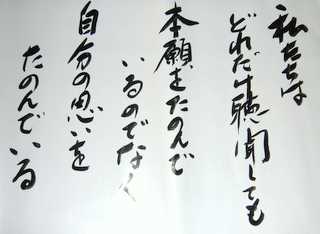 私たちは
どれだけ聴聞しても
本願をたのんで
いるのでなく
自分の思いを
たのんでいる